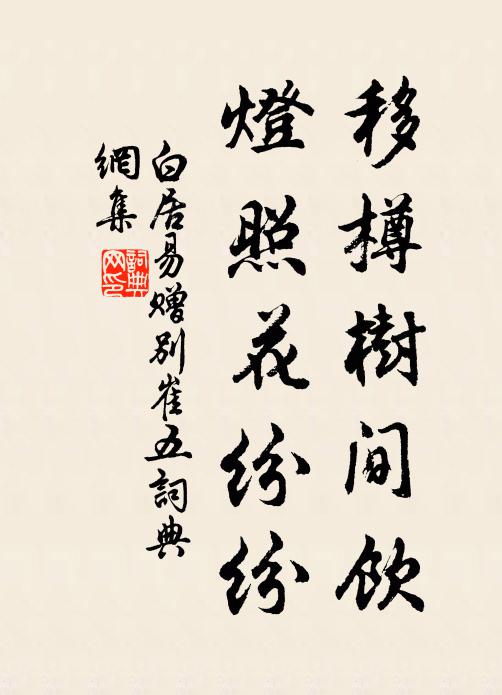 移樽樹間飲
燈照花紛紛
白居易赠别崔五詞典
網集
詞典
网印